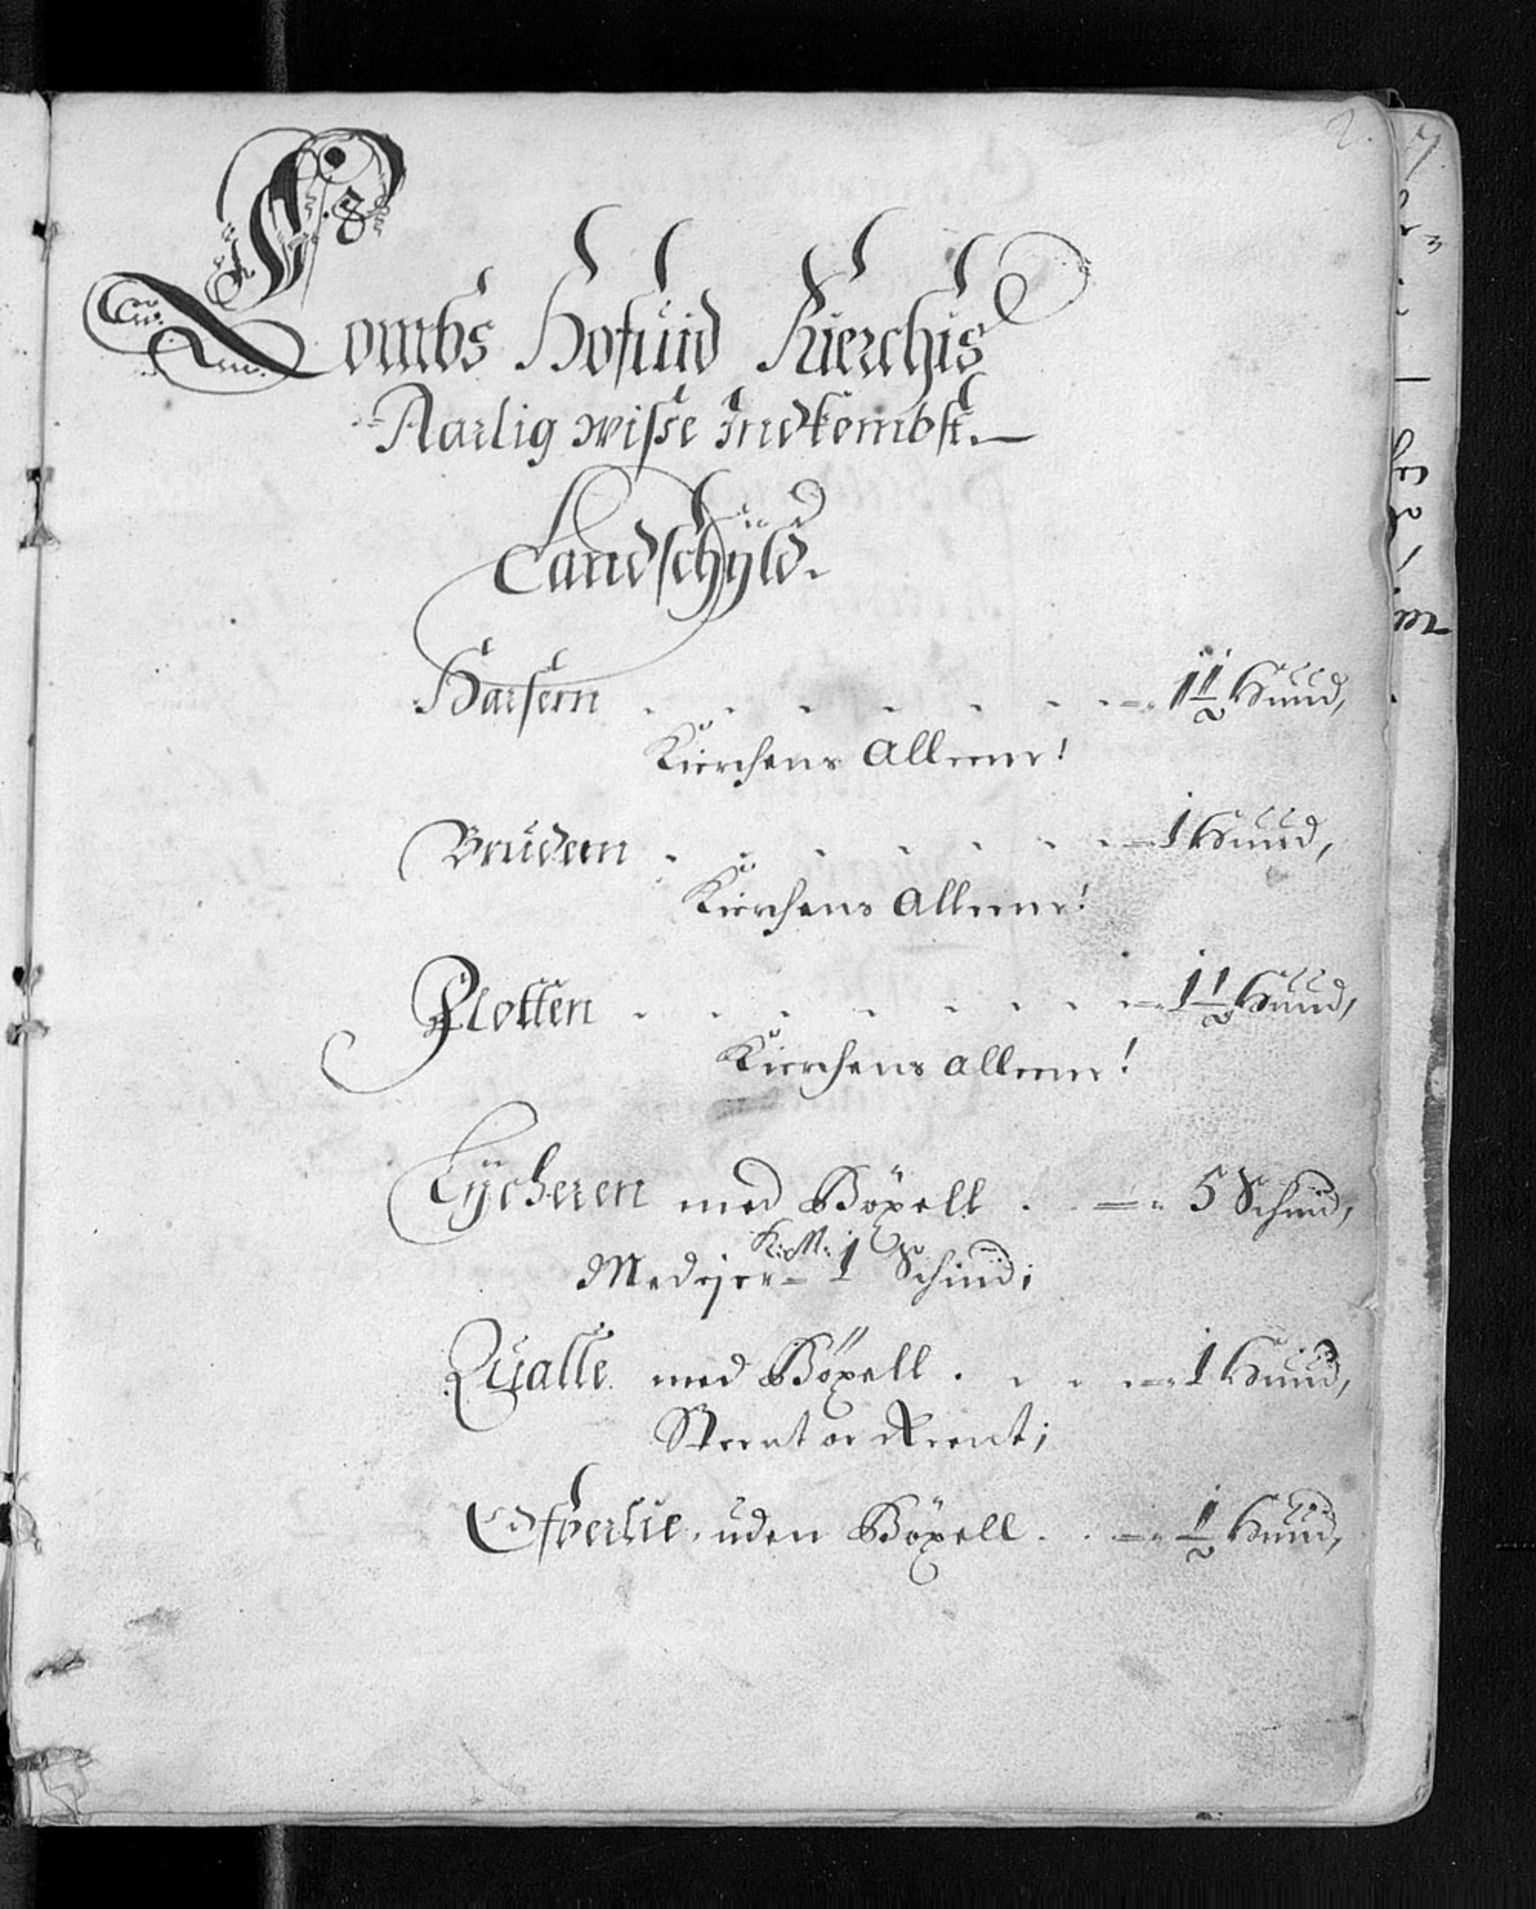 2.
Lombs Hofuid Kierchis
Aarlig wisse Indkombst.
Landschÿld.
Harsem . . . . . . . 1½ Huud,
Kirchens Alleene!
Brudem . . . . . . 1 Huud,
Kirchens Alleene!
Plotten . . . . . . . 1½ Huud,
Kirchens alleene!
Lÿcheren med Böxell . . 5 Schind,
Medejer K: M: 1 Schind;
Qualle med Böxell . . . . 1 Huud,
uden Böxell . . ½ Huud,